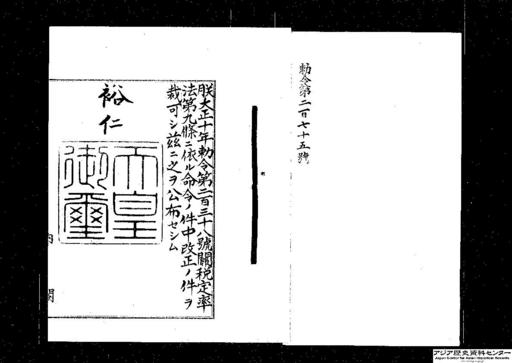 勅令第二百七十五號
朕大正十年勅令第二百三十八號關税定率
法第九條ニ依ル命令ノ件中改正ノ件ヲ
裁可シ茲ニ之ヲ公布セシム
裕仁
天皇
御璽
内閣
アジア歴史資料センター
Japan Center for Asian Historical Records